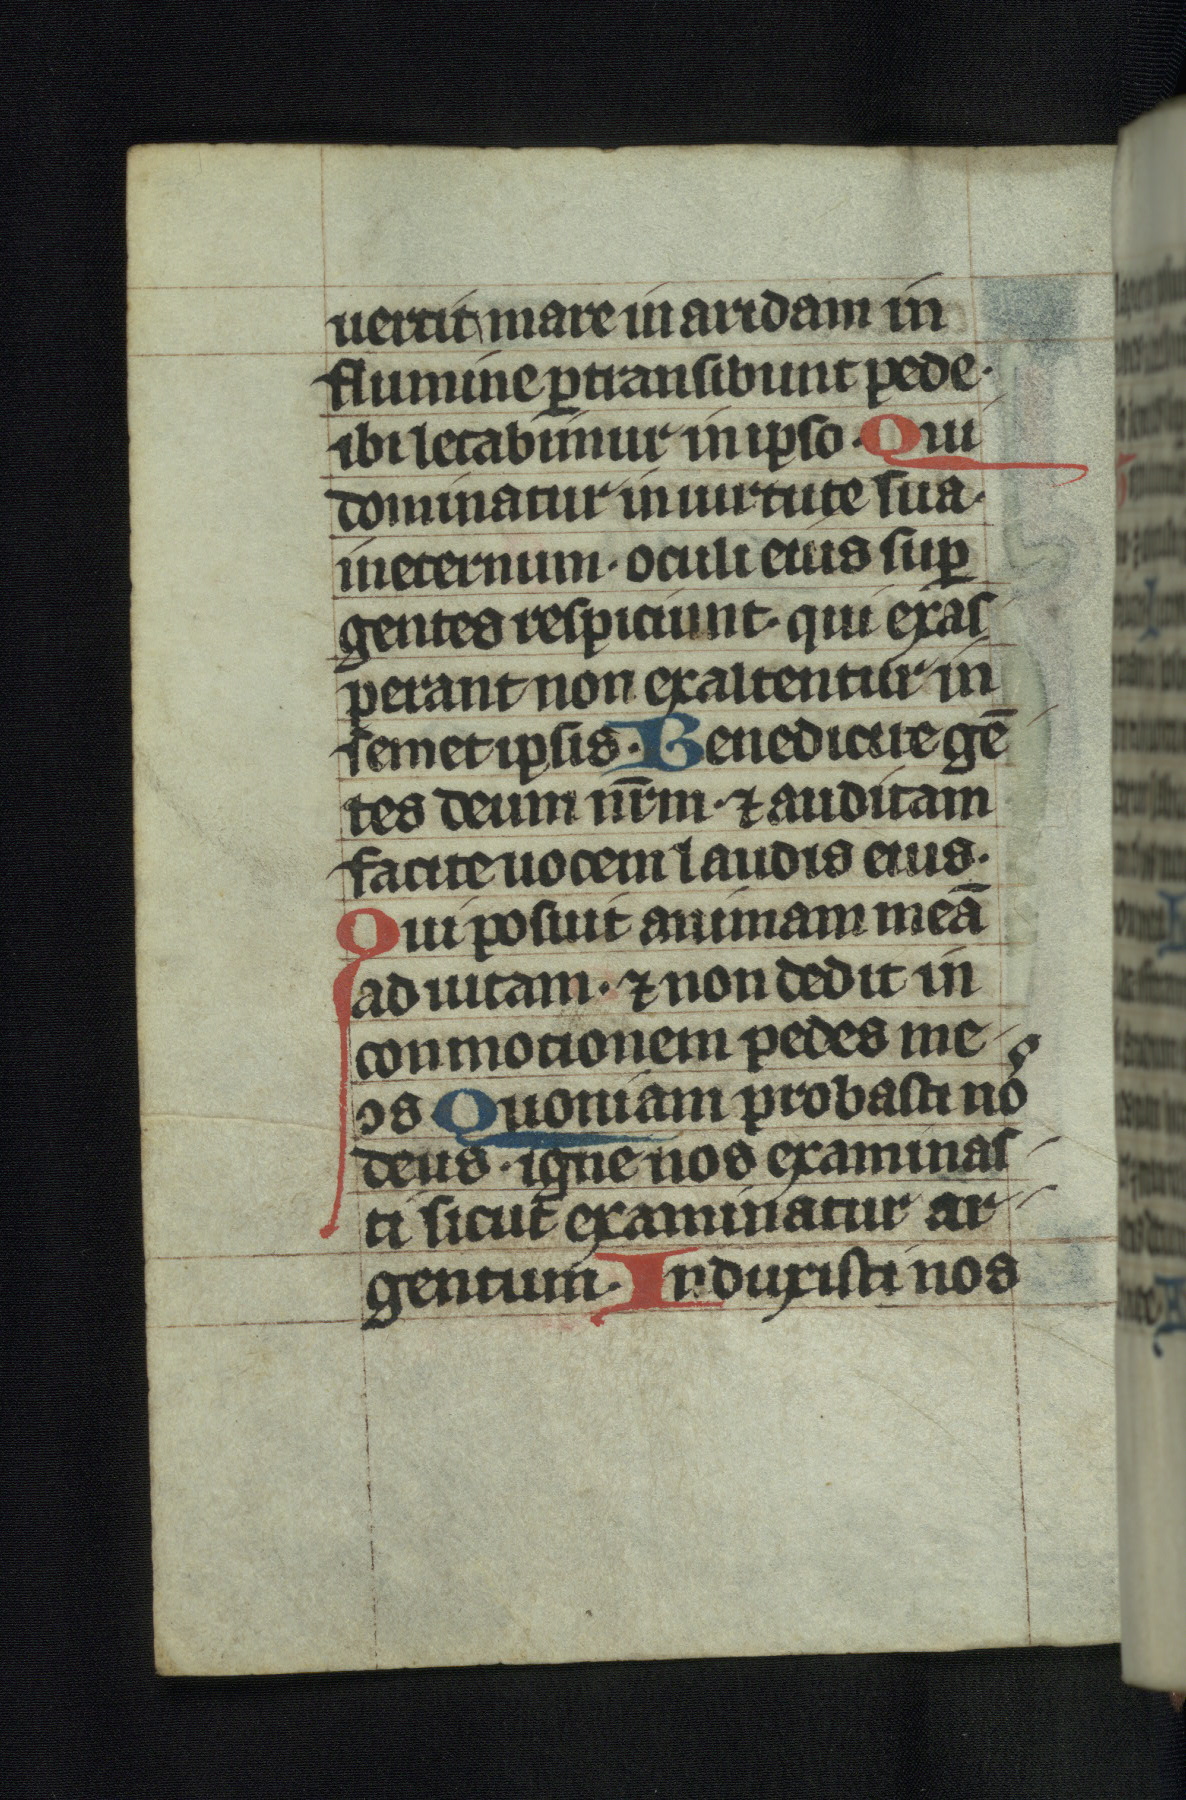 uertit mare in aridam in
flumine ꝑtransibunt pede·
ibi letabimur in ipso· Qui
dominatur in uirtute sua·
in eternum· oculi eius suꝑ
gentes respiciunt· qui exas
perant non exaltentur in
semet ipsis· Benedicite gē
tes deum nr̄m· ⁊ auditam
facite uocem laudis eius·
Qui posuit animam meā
ad uitam· ⁊ non dedit in
conmotionem pedes me
os Quoniam probasti nos
deus· igne nos examinas
ti sicut examinatur ar
gentum· Induxisti nos